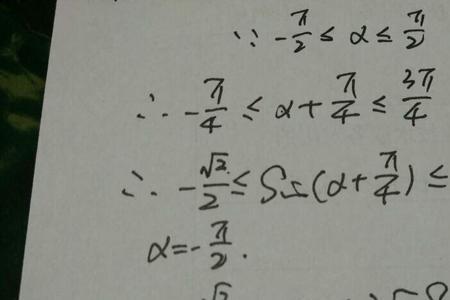 ∵ -π/2 ≤ α ≤ π/2
∴ -π/4 ≤ α + π/4 ≤ 3π/4
∴ -√2/2 ≤ Sin(α + π/4) ≤
α = -π/2.